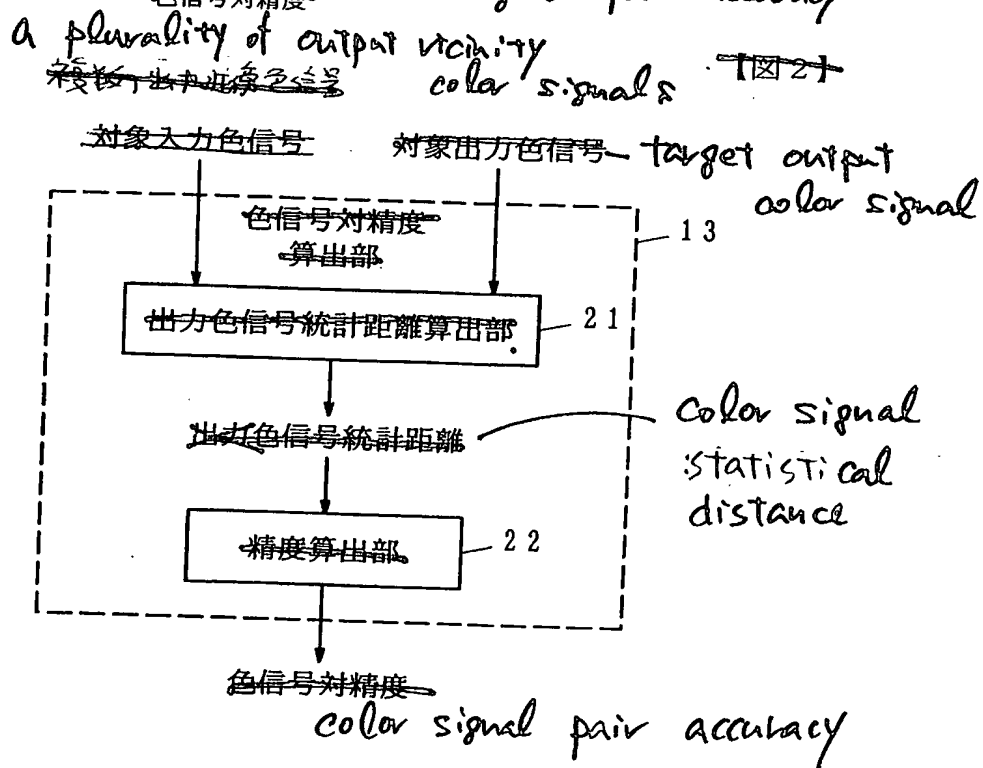 色信号対精度
a plurality of output vicinity
color signals
【図2】
対象入力色信号
対象出力色信号
target output
color signal
13
色信号対精度
算出部
出力色信号統計距離算出部
21
出力色信号統計距離
color signal
statistical
distance
精度算出部
22
色信号対精度
color signal pair accuracy